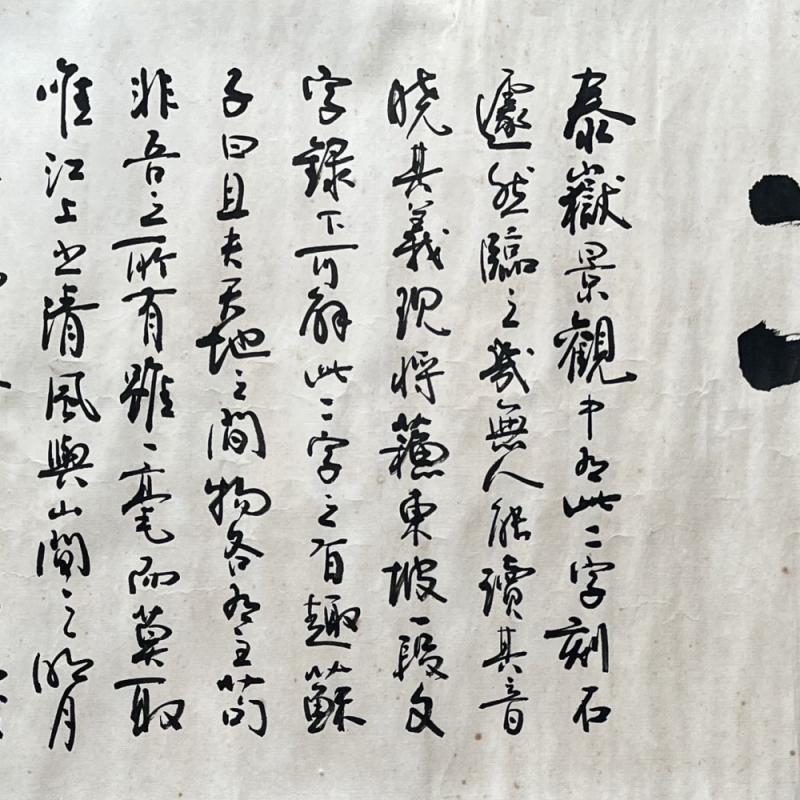 泰嶽景觀中有此二字刻石
遽然臨之幾無人能讀其音
曉其義現將蘇東坡一段文
字錄下可解此二字之旨趣蘇
子曰且夫天地之間物各有主苟
非吾之所有雖一毫而莫取
唯江上之清風與山間之明月